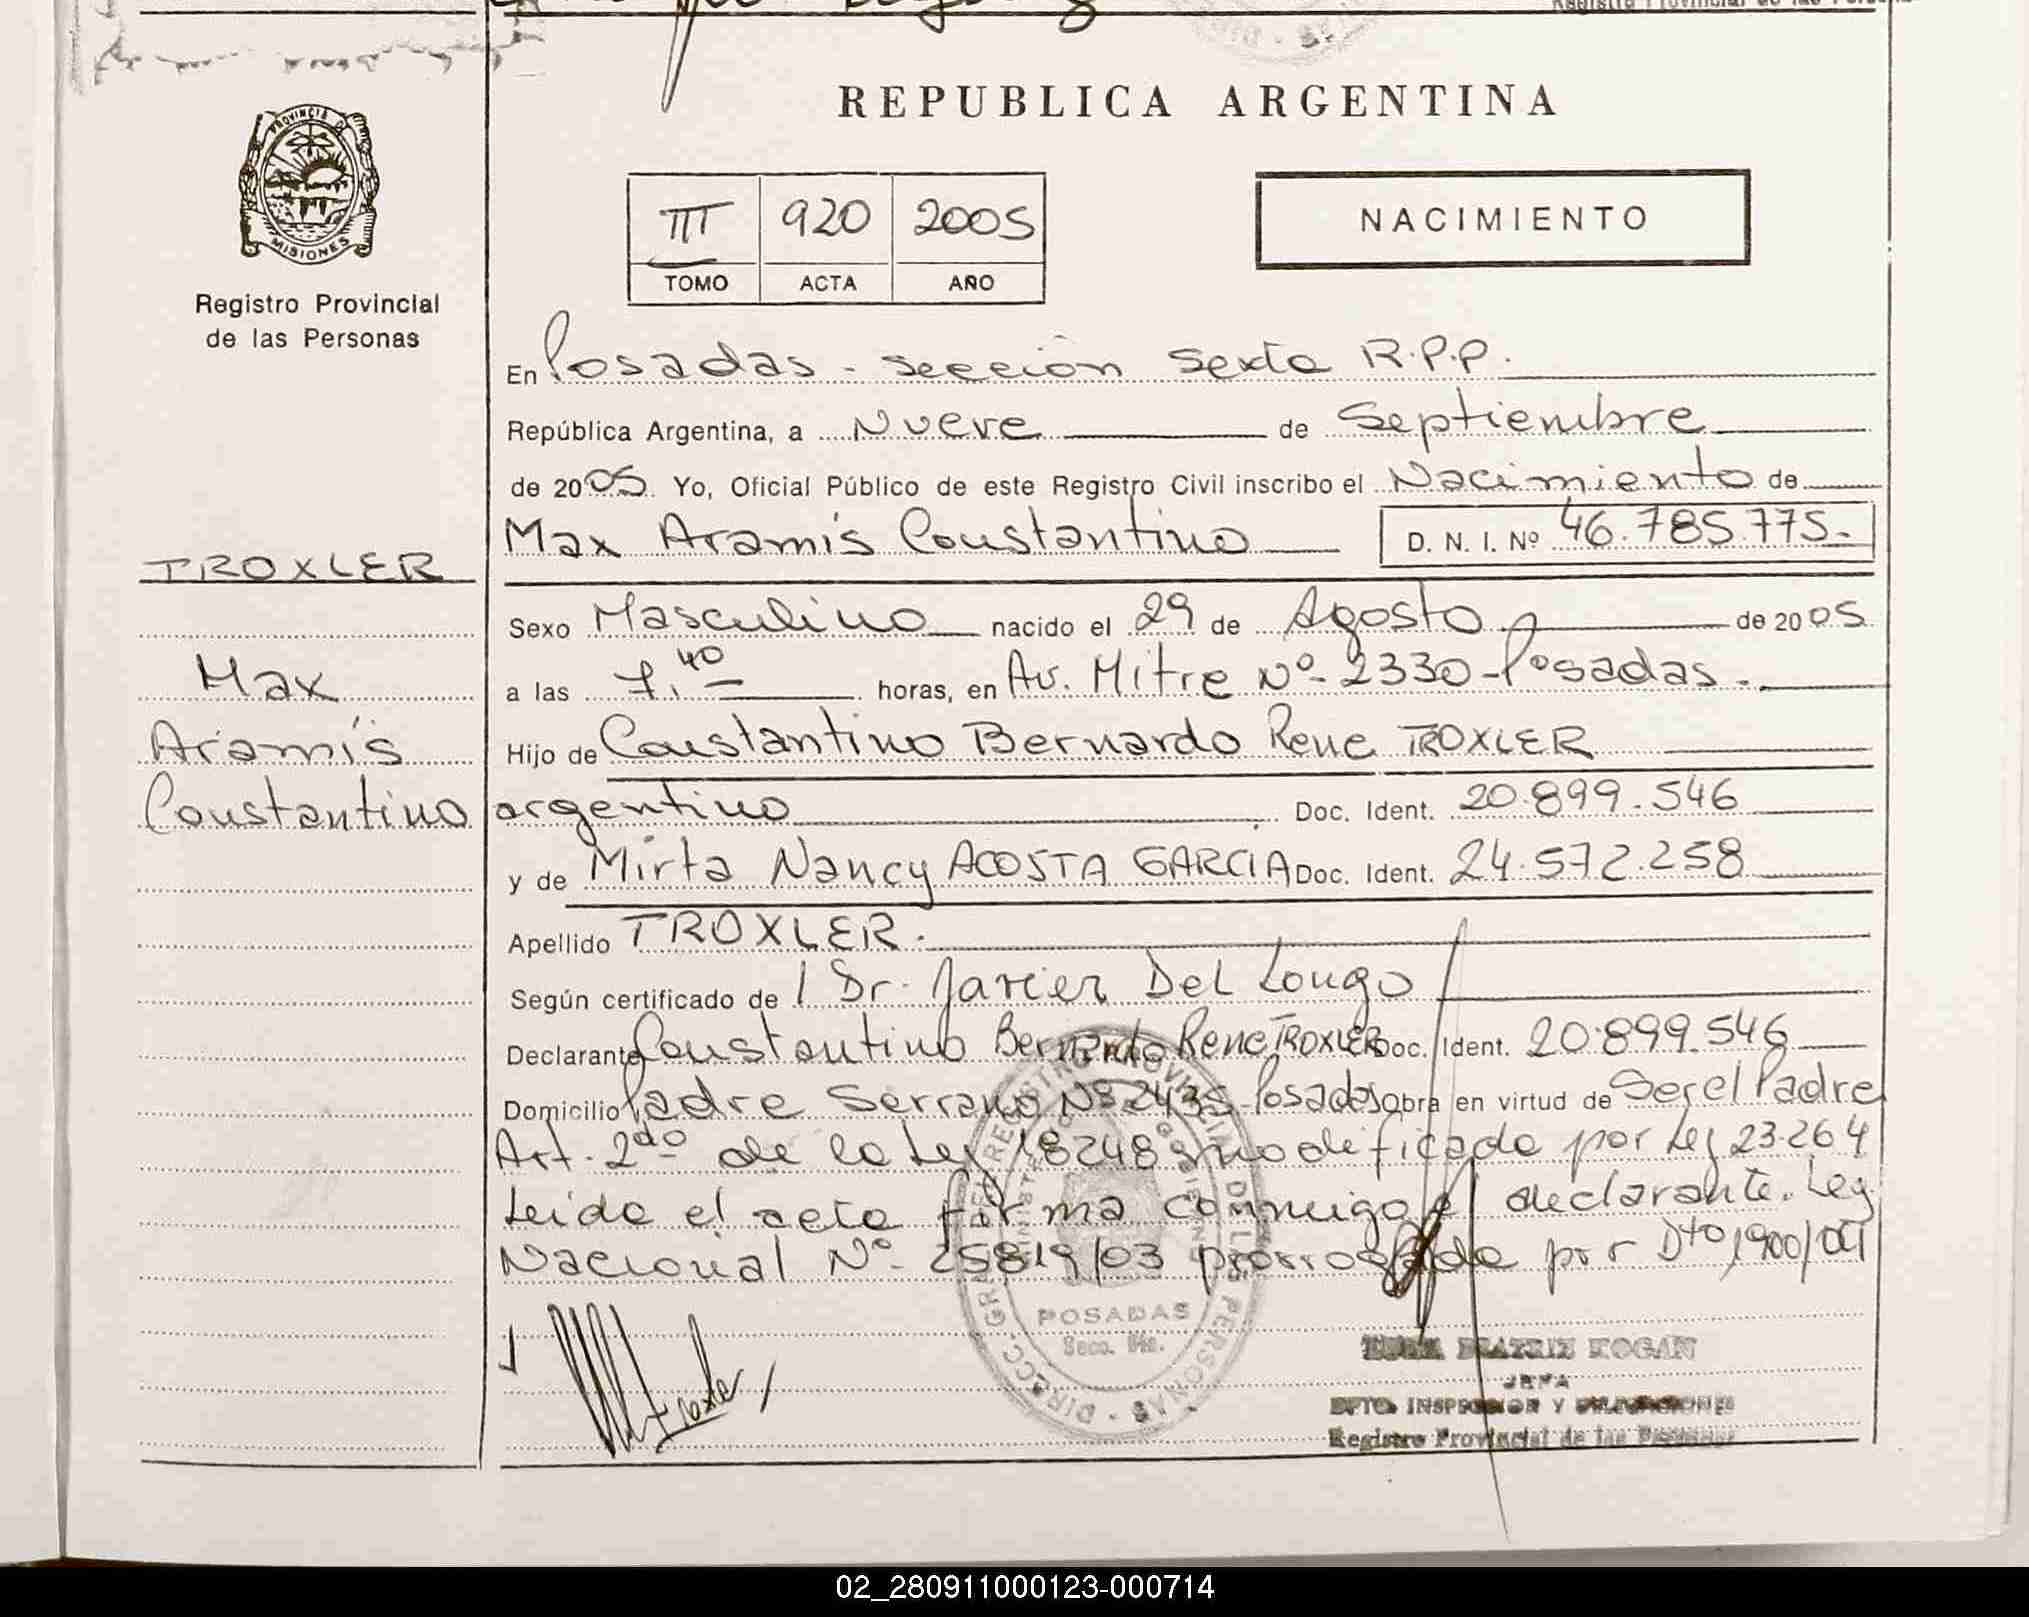 REPUBLICA ARGENTINA
PROVINCIA DE
MISIONES
Registro Provincial
de las Personas
III 920 2005
TOMO ACTA AÑO
NACIMIENTO
En Posadas - sección Sexta R.P.P.
República Argentina, a Nueve de Septiembre
de 2005 Yo, Oficial Público de este Registro Civil inscribo el Nacimiento de
Max Aramís Constantino D. N. I. Nº 46.785.775.-
TROXLER
Max
Aramís
Constantino
Sexo Masculino nacido el 29 de Agosto de 2005
a las 7,40 horas, en Av. Mitre Nº 2330-Posadas.-
Hijo de Constantino Bernardo Rene TROXLER
argentino Doc. Ident. 20.899.546
y de Mirta Nancy ACOSTA GARCIA Doc. Ident. 24.572.258
Apellido TROXLER.-
Según certificado de / Dr. Javier Del Longo
Declarante Constantino Bernardo Rene TROXLER Doc. Ident. 20.899.546
Domicilio Padre Serrano Nº 2435-Posadas obra en virtud de Ser el Padre
Art. 2do de la Ley 18248 modificada por Ley 23.264
Leída el acta firma conmigo el declarante. Ley
Nacional Nº 25819/03 prorrogada por Dto 1900/04
POSADAS
Secc. 6ta.
BEATRIZ KOGAN
JEFA
DPTO. INSPECCION Y DELEGACIONES
Registro Provincial de las Personas
Troxler
02_280911000123-000714